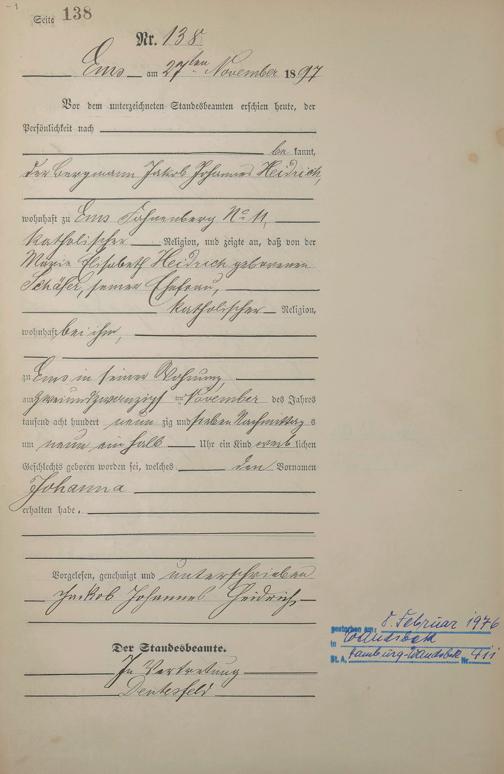 Seite 138
Nr. 138
Ems am 27ten November 1897
Vor dem unterzeichneten Standesbeamten erschien heute, der
Persönlichkeit nach
be kannt,
der Bergmann Jakob Johannes Heidrich,
wohnhaft zu Ems No 11,
katholischer Religion, und zeigte an, daß von der
Marie Elisabeth Heidrich geborenen
Schäfer, seiner Ehefrau,
katholischer Religion,
wohnhaft bei ihm,
zu Ems in seiner Wohnung
am zweiundzwanzigsten November des Jahres
tausend acht hundert neun zig und sieben Nachmittag s
um neun ein halb Uhr ein Kind weib lichen
Geschlechts geboren worden sei, welches den Vornamen
Johanna
erhalten habe.
Vorgelesen, genehmigt und unterschrieben
Jackob Johannes Heidrich
Der Standesbeamte.
In Vertretung
gestorben am: 8. Februar 1976
in Wandsbek
St. A. Hamburg-Wandsbek Nr.